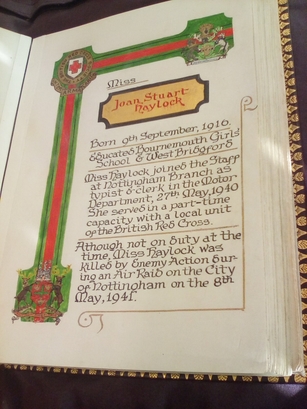 Miss
Joan Stuart-
Haylock
Born 9th September, 1916.
Educated Bournemouth Girls'
School & West Bridgford
Miss Haylock joined the Staff
at Nottingham Branch as
typist & clerk in the Motor
Department, 27th May, 1940
She served in a part-time
capacity with a local unit
of the British Red Cross.
Athough not on duty at the
time, Miss Haylock was
killed by Enemy Action dur-
ing an Air Raid on the City
of Nottingham on the 8th
May, 1941.